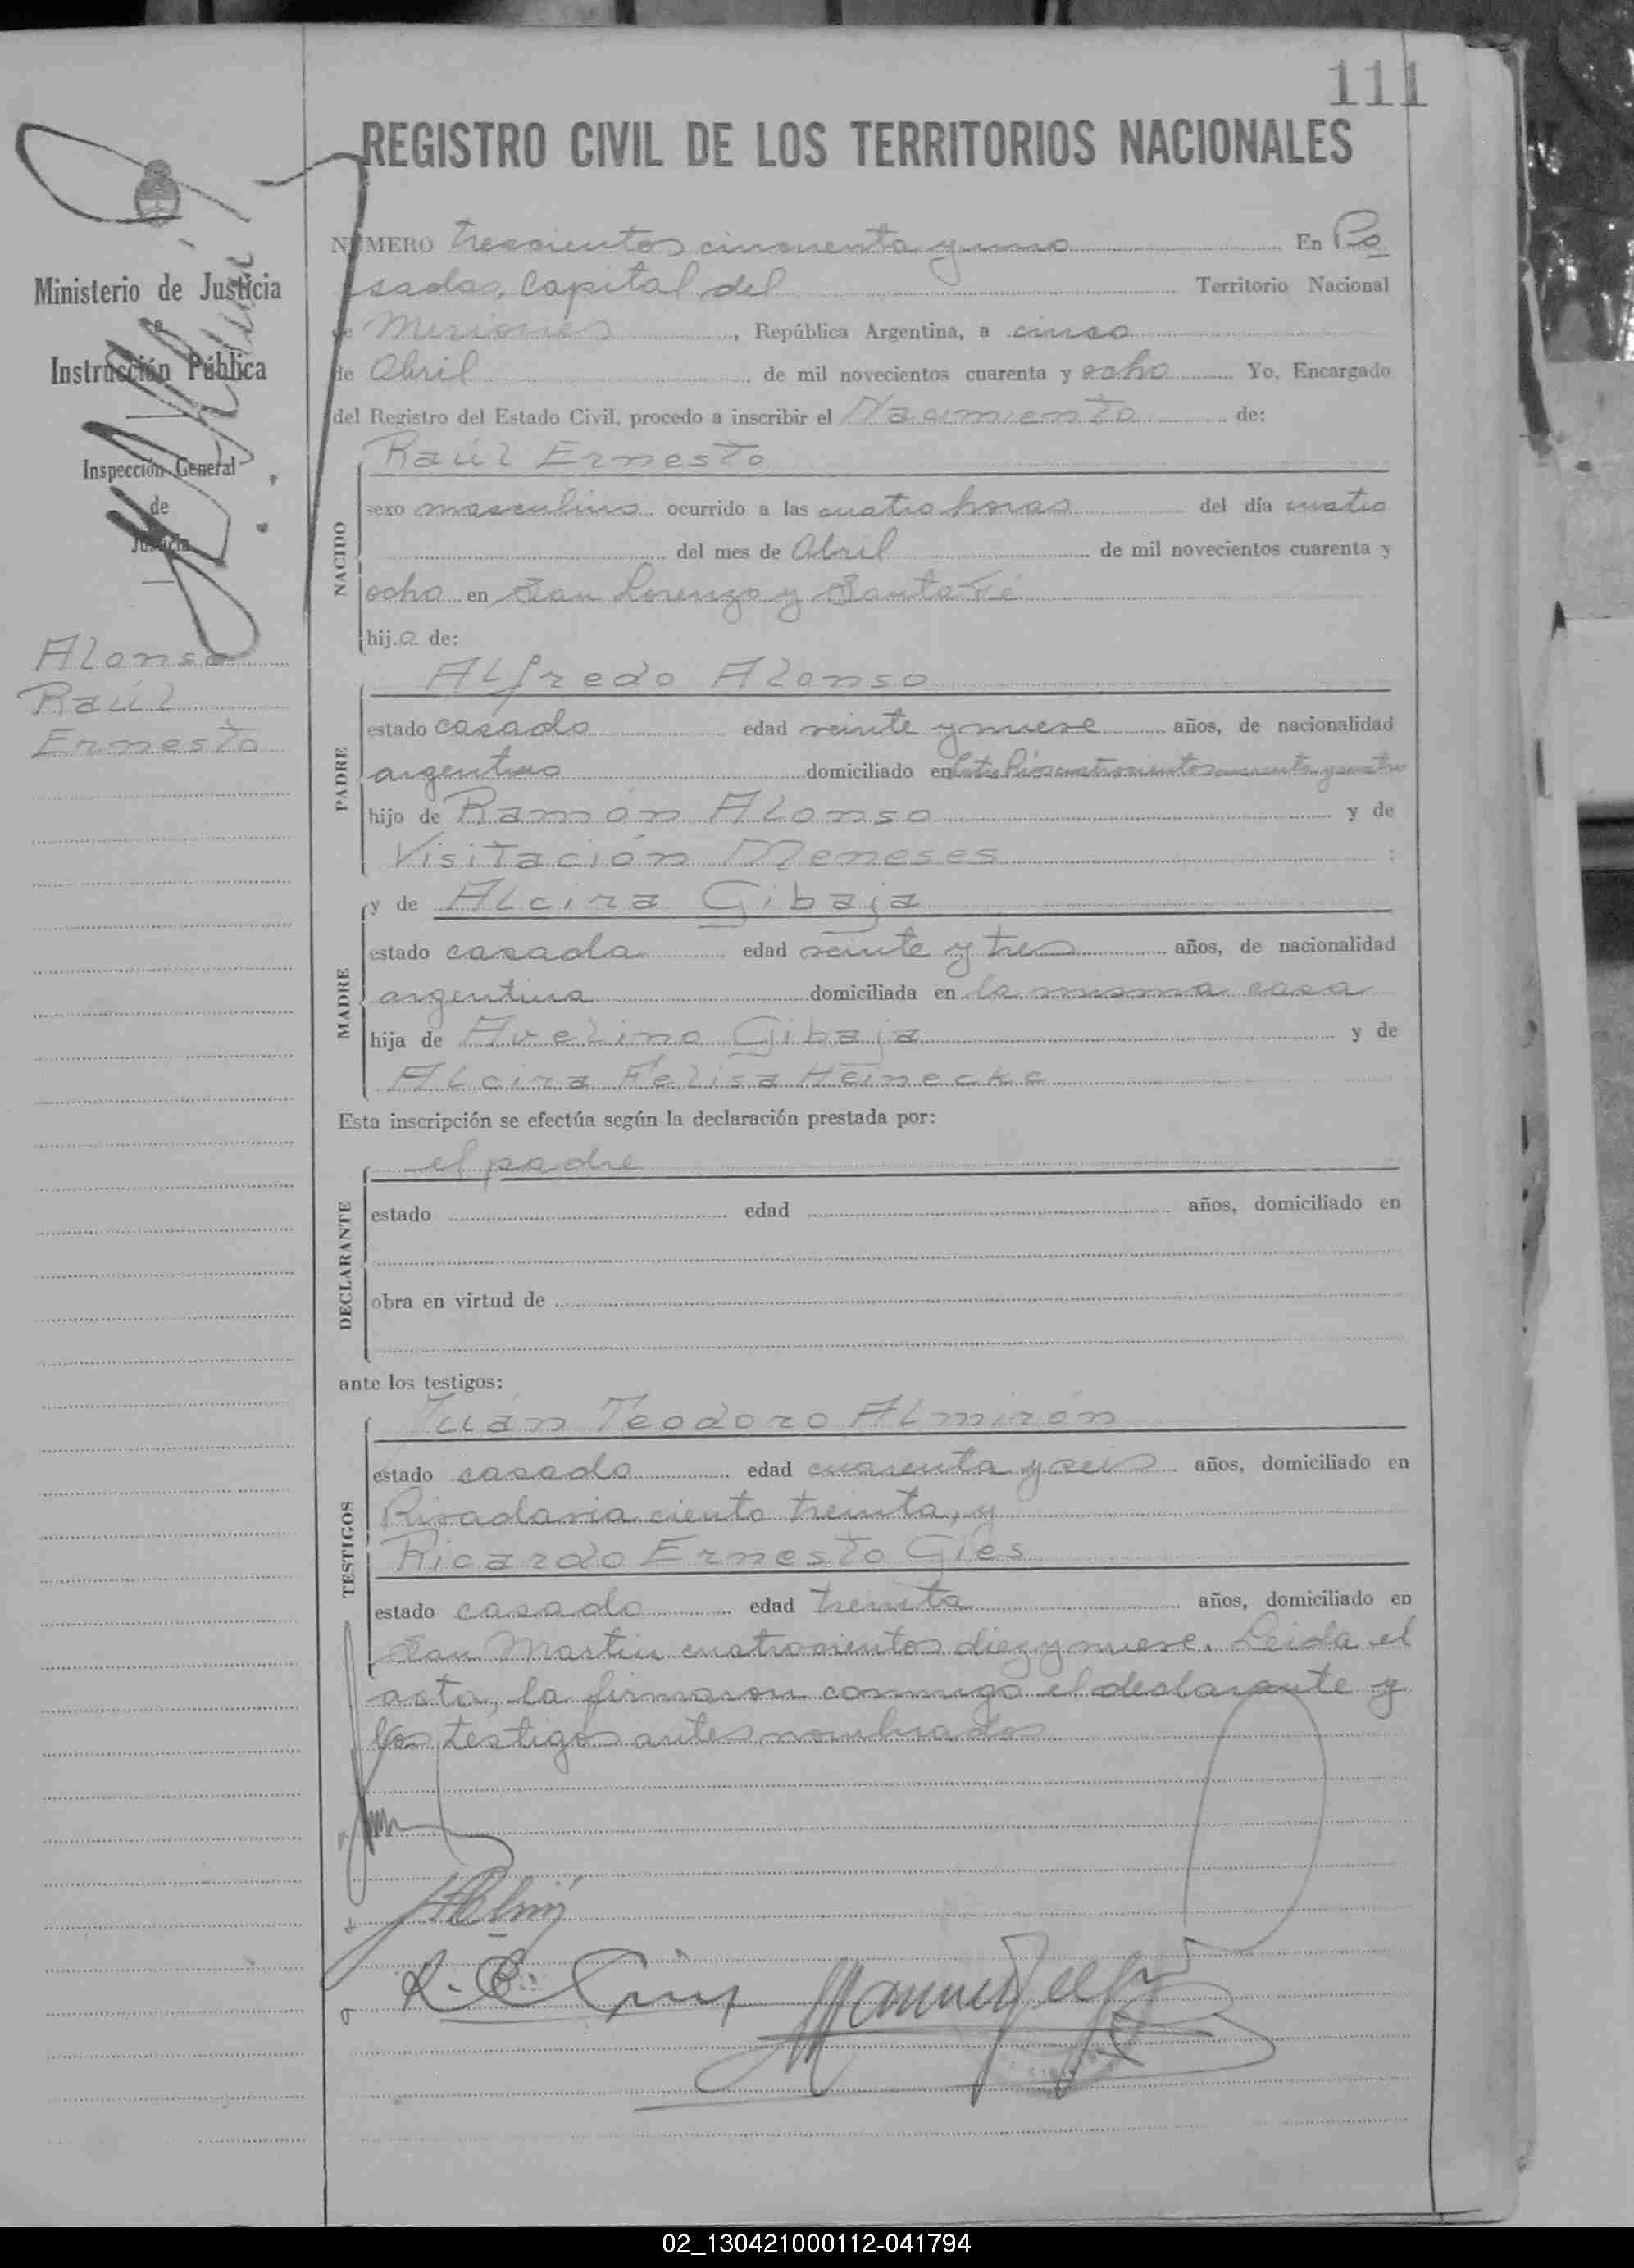 111
REGISTRO CIVIL DE LOS TERRITORIOS NACIONALES
Ministerio de Justicia
e
Instrucción Pública
Inspección General
de
Justicia
Alonso
Raúl
Ernesto
NUMERO trescientos cincuenta y uno En Po
sadas, Capital del Territorio Nacional
de Misiones, República Argentina, a cinco
de Abril de mil novecientos cuarenta y ocho Yo, Encargado
del Registro del Estado Civil, procedo a inscribir el Nacimiento de:
Raúl Ernesto
NACIDO
sexo masculino ocurrido a las cuatro horas del día cuatro
del mes de Abril de mil novecientos cuarenta y
ocho en San Lorenzo y Santa Fé
hij.o de:
Alfredo Alonso
PADRE
estado casado edad veinte y nueve años, de nacionalidad
argentino domiciliado en Entre Ríos cuatrocientos cuarenta y cuatro
hijo de Ramón Alonso y de
Visitación Meneses ;
y de Alcira Gibaja
MADRE
estado casada edad veinte y tres años, de nacionalidad
argentina domiciliada en la misma casa
hija de Avelino Gibaja y de
Alcira Felisa Heinecke
Esta inscripción se efectúa según la declaración prestada por:
el padre
DECLARANTE
estado edad años, domiciliado en
obra en virtud de
ante los testigos:
Juan Teodoro Almirón
TESTIGOS
estado casado edad cuarenta y seis años, domiciliado en
Rivadavia ciento treinta, y
Ricardo Ernesto Gies
estado casado edad treinta años, domiciliado en
San Martin cuatrocientos diez y nueve. Leida el
acta, la firmaron conmigo el declarante y
los testigos antes nombrados
R. E. Gies
02_130421000112-041794